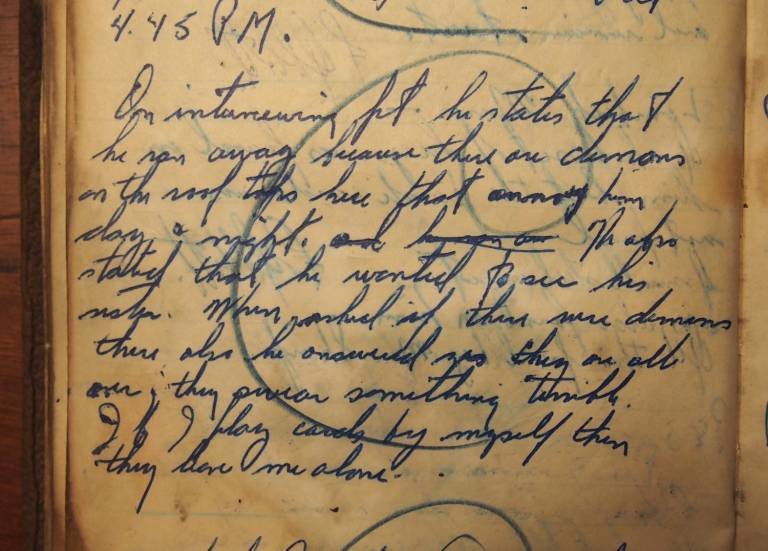 4.45 P.M.
On interviewing pt. he states that
he ran away because there are demons
on the roof tops here that annoy him
day & night. and he ran away He also
stated that he wanted to see his
sister. When asked if there were demons
there also he answered yes they are all
over; they swear something terrible.
If I play cards by myself then
they leave me alone.